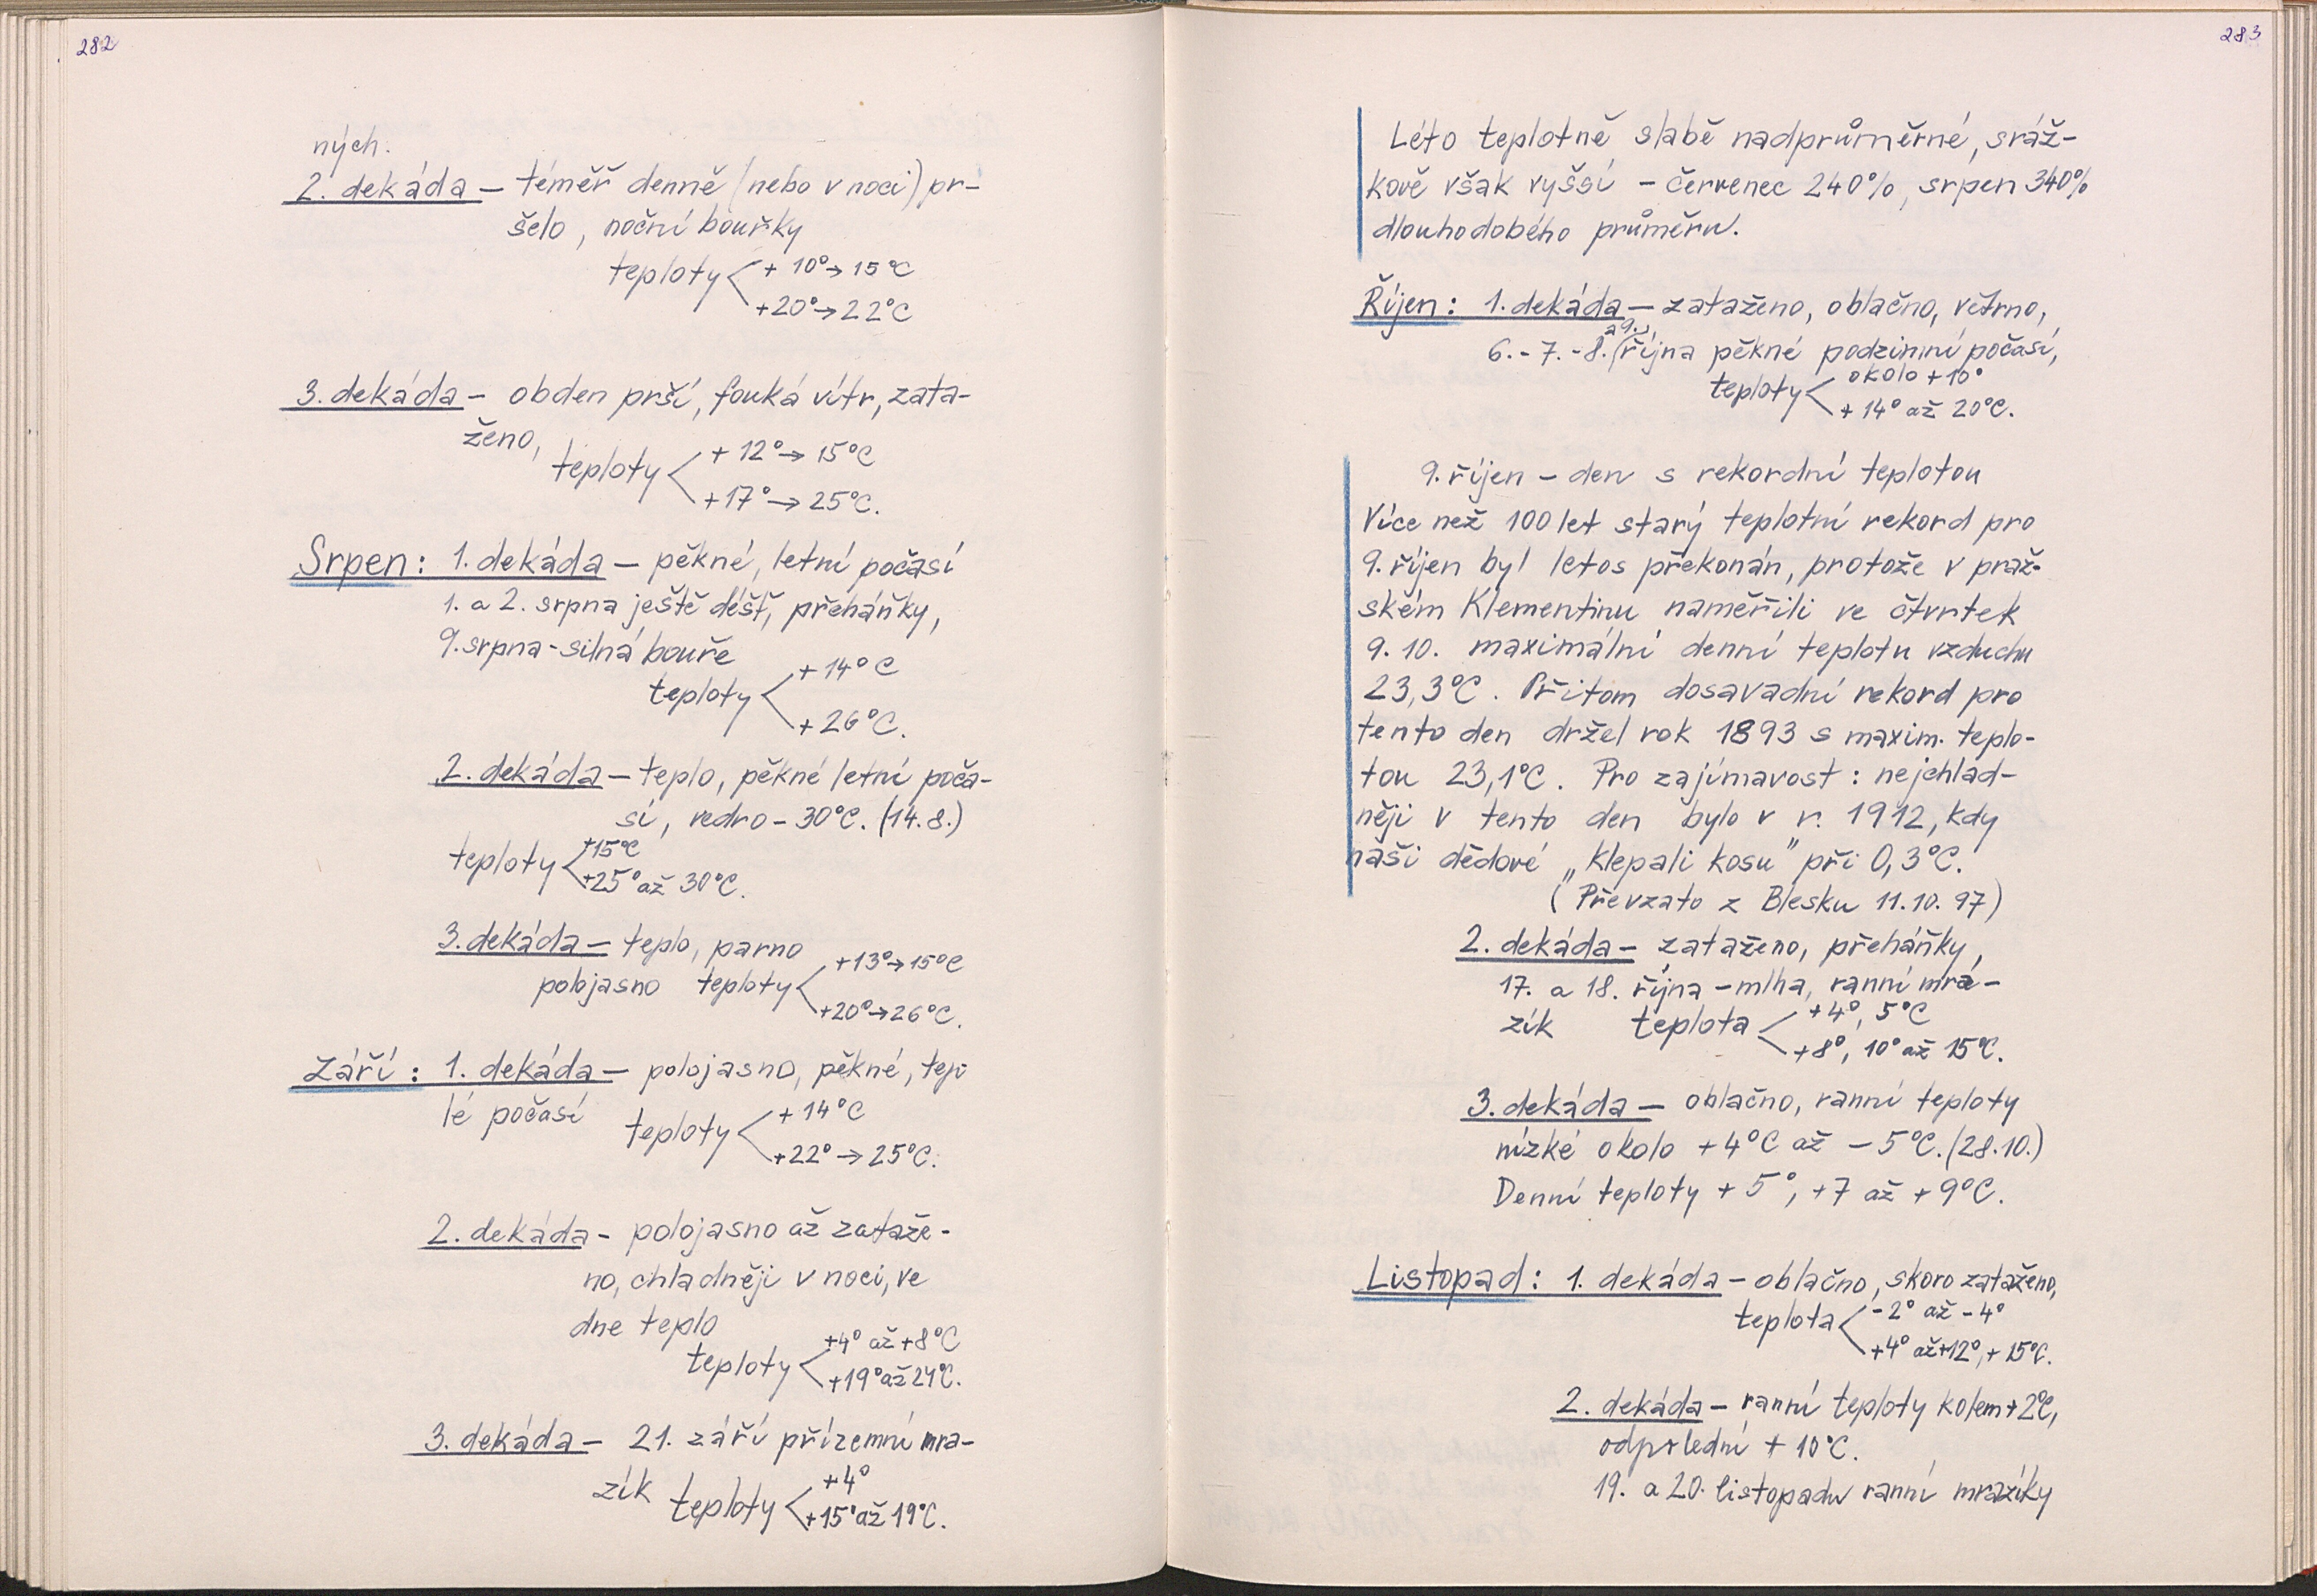 282
ných.
2. dekáda – téměř denně (nebo v noci) pr-
šelo, noční bouřky
teploty < + 10° → 15°C
+20° → 22°C
3. dekáda – obden prší, fouká vítr, zata-
ženo,
teploty < + 12° → 15°C
+17° → 25°C.
Srpen: 1. dekáda – pěkné, letní počasí
1. a 2. srpna ještě déšť, přeháňky,
9. srpna - silná bouře
teploty < + 14°C
+ 26°C.
2. dekáda – teplo, pěkné letní poča-
sí, vedro – 30°C. (14. 8.)
teploty < +15°C
+25° až 30°C.
3. dekáda – teplo, parno
polojasno teploty < +13° → 15°C
+20° → 26°C.
Září: 1. dekáda – polojasno, pěkné, tep-
lé počasí
teploty < + 14°C
+22° → 25°C.
2. dekáda – polojasno až zataže-
no, chladněji v noci, ve
dne teplo
teploty < +4° až +8°C
+19° až 24°C.
3. dekáda – 21. září přízemní mra-
zík teploty < +4°
+15° až 19°C.
283
Léto teplotně slabě nadprůměrné, sráž-
kově však vyšší – červenec 240%, srpen 340%
dlouhodobého průměru.
Říjen: 1. dekáda – zataženo, oblačno, větrno,
a 9.
6. - 7. - 8. října pěkné podzimní počasí,
teploty < okolo +10°
+ 14° až 20°C.
9. říjen – den s rekordní teplotou
Více než 100 let starý teplotní rekord pro
9. říjen byl letos překonán, protože v praž-
ském Klementinu naměřili ve čtvrtek
9. 10. maximální denní teplotu vzduchu
23,3°C. Přitom dosavadní rekord pro
tento den držel rok 1893 s maxim. teplo-
tou 23,1°C. Pro zajímavost: nejchlad-
něji v tento den bylo v r. 1912, kdy
naši dědové „klepali kosu" při 0,3°C.
(Převzato z Blesku 11. 10. 97)
2. dekáda – zataženo, přeháňky,
17. a 18. října – mlha, ranní mrá-
zík teplota < +4°, 5°C
+8°, 10° až 15°C.
3. dekáda – oblačno, ranní teploty
nízké okolo +4°C až – 5°C. (28. 10.)
Denní teploty + 5°, +7 až + 9°C.
Listopad: 1. dekáda – oblačno, skoro zataženo,
teplota < -2° až -4°
+4° až +12°, + 15°C.
2. dekáda – ranní teploty kolem +2°C,
odpolední + 10°C.
19. a 20. listopadu ranní mrazíky